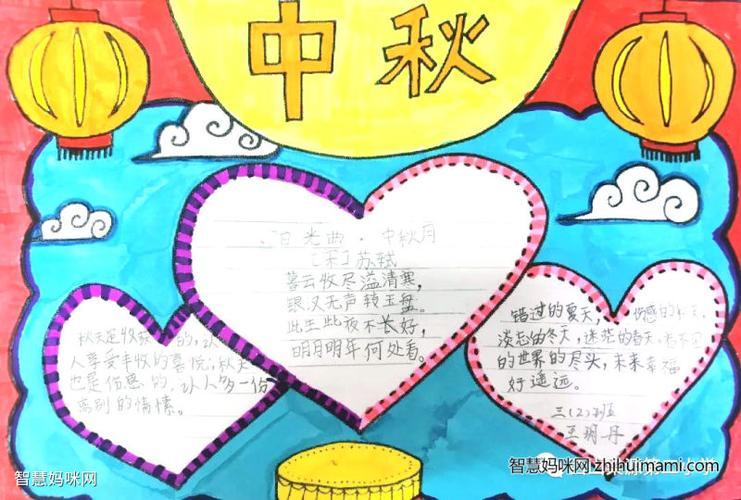 中秋
日光曲·中秋月
[宋]苏轼
暮云收尽溢清寒，
银汉无声转玉盘。
此生此夜不长好，
明月明年何处看。
秋天是收获的，让
人享受丰收的喜悦；秋天
也是伤感的，让人多一份
离别的情愫。
错过的夏天，伤感的秋天，
淡忘的冬天，迷茫的春天，
的世界的尽头，未来幸福
好遥远。
三(2)班
王玥丹
智慧妈咪网
智慧妈咪网 zhihuimami.com